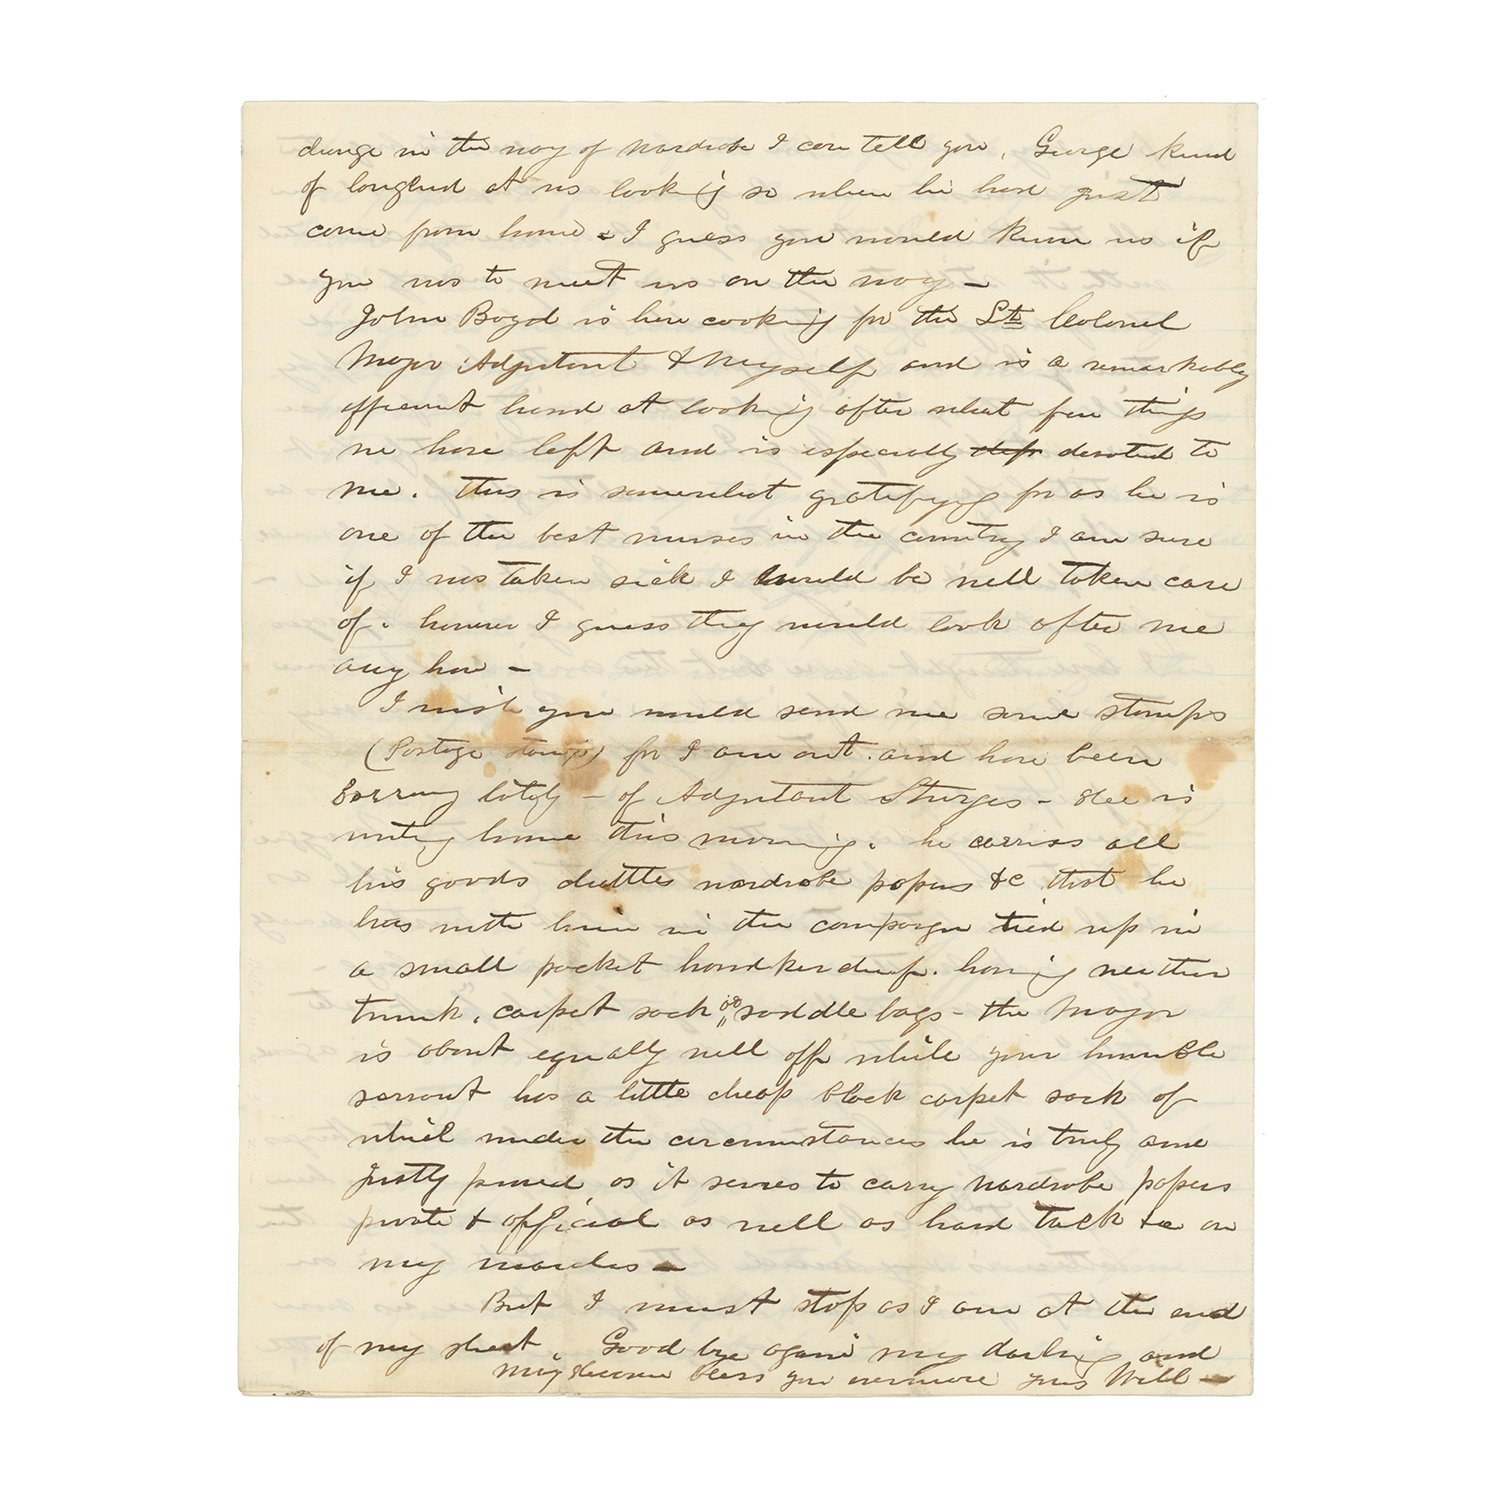 change in the way of wardrobe I can tell you, George kind
of laughed at us looking so when he had just
come from home & I guess you would know us if
you was to meet us on the way –
John Boyd is here cooking for the Lt. Colonel
Major Adjutant & Myself and is a remarkably
efficient hand at looking after what few things
we have left and is especially devoted to
me. this is somewhat gratifying for as he is
one of the best nurses in the country I am sure
if I was taken sick I would be well taken care
of. however I guess they would look after me
any how –
I wish you would send me some stamps
(Postage stamps) for I am out. and have been
Borrowing lately – of Adjutant Sturges – Hee is
writing home this morning. he carries all
his goods chattles wardrobe papers &c that he
has with him in the campaign tied up in
a small pocket handkerchief. having neither
trunk, carpet sack or saddle bags – the Major
is about equally well off while your humble
servant has a little cheap black carpet sack of
which under the circumstances he is truly and
Justly proud as it serves to carry wardrobe papers
private & official as well as hard tack &c on
my marches –
But I must stop as I am at the end
of my sheet. Good bye again my darling and
may Heaven bless you evermore yours Will –